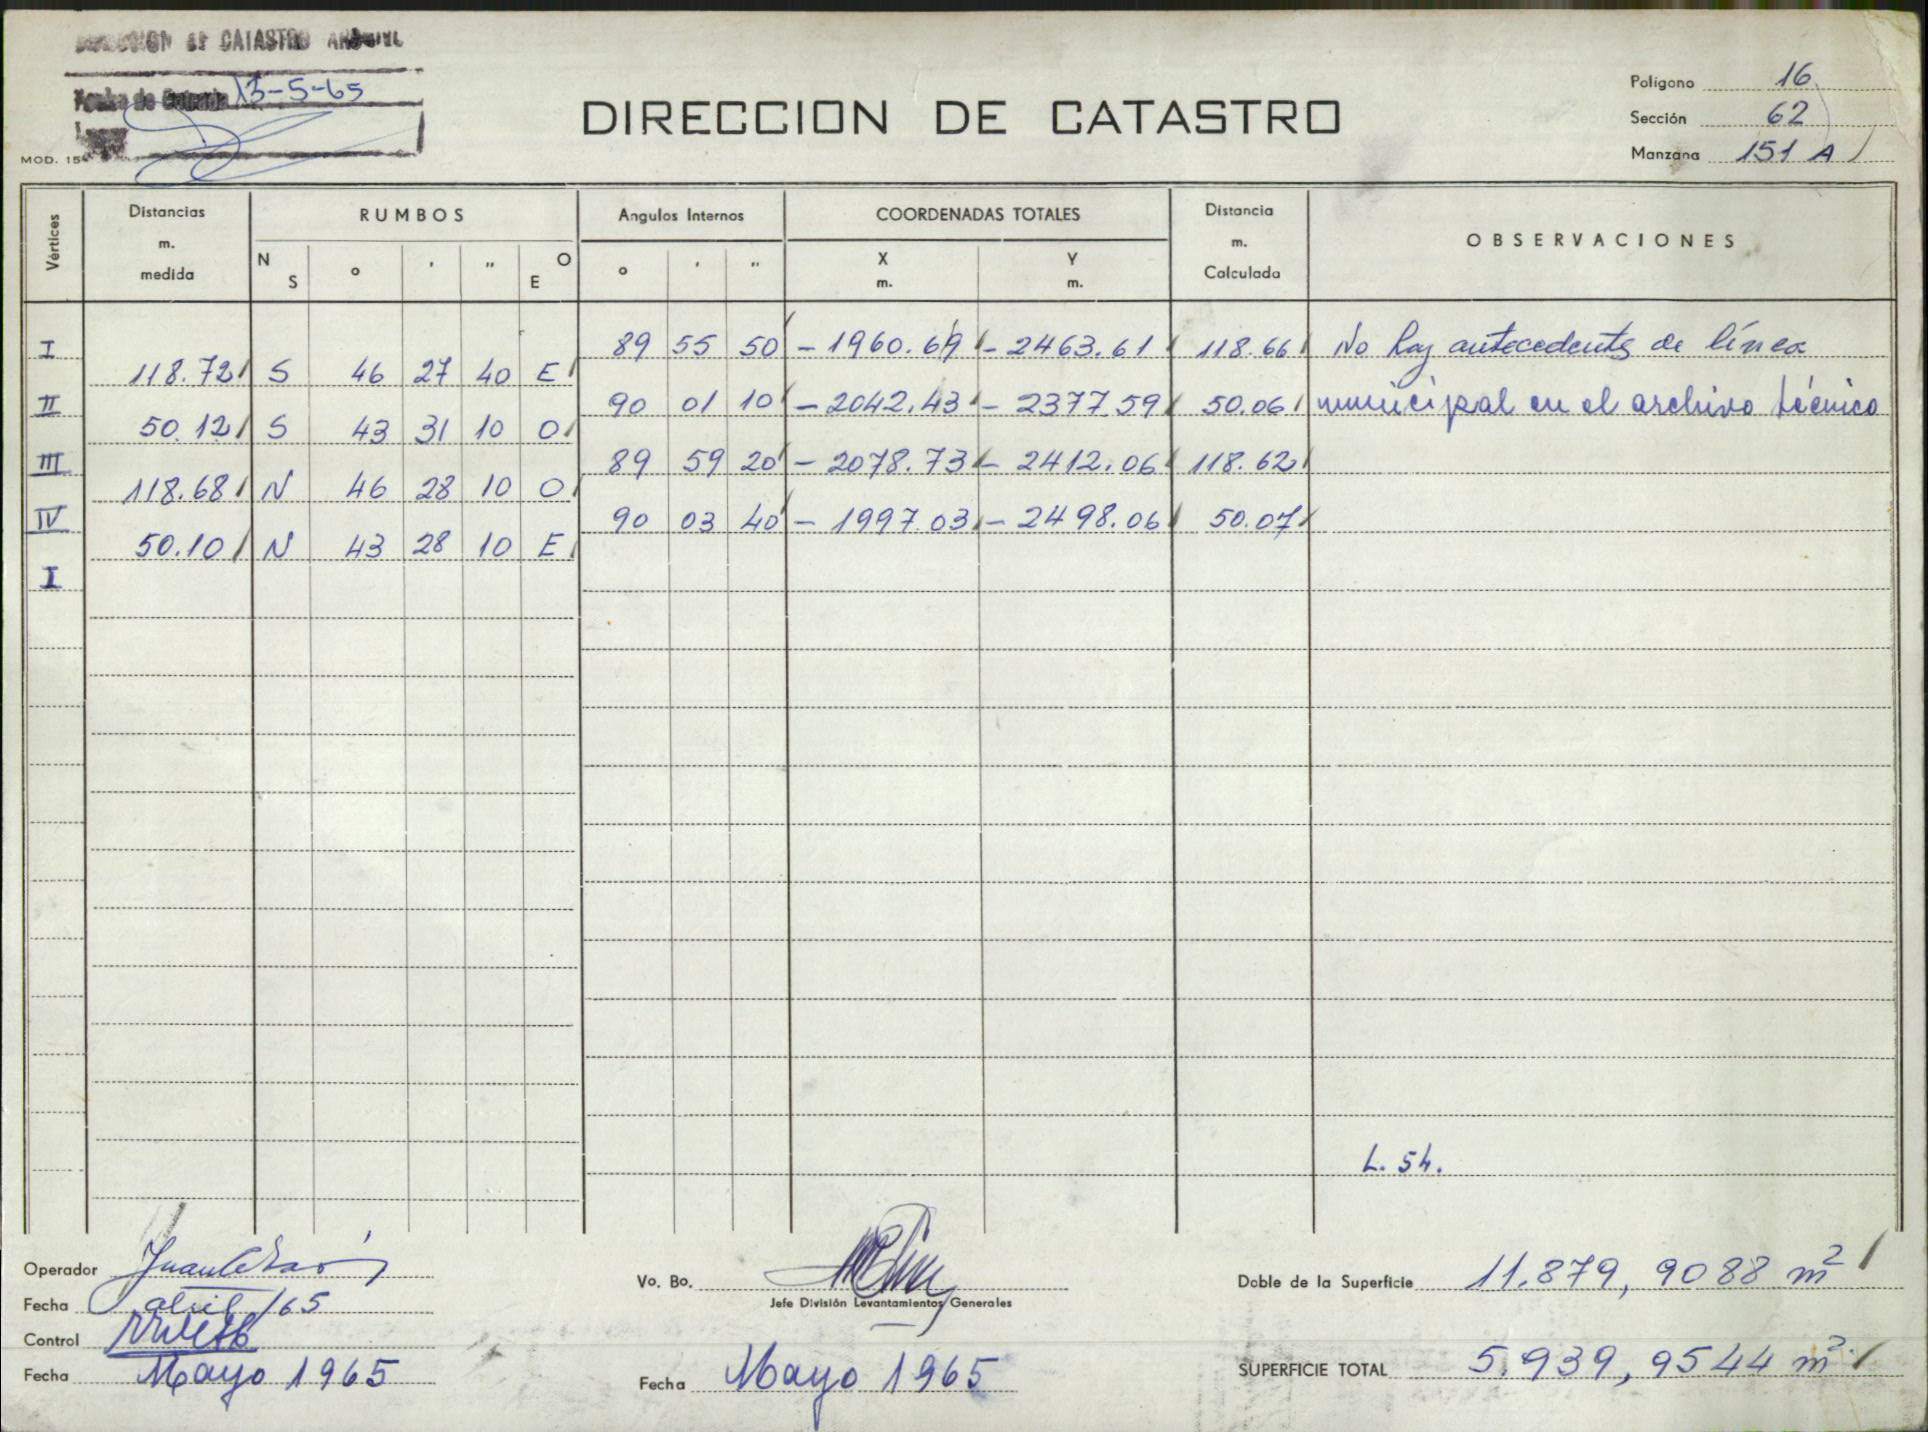 DIRECCION de CATASTRO
Fecha de Entrada 13-5-65
MOD. 15
DIRECCION DE CATASTRO
Polígono 16
Sección 62
Manzana 151 A
Vértices
Distancias m. medida
RUMBOS
N S ° ' " O E
Angulos Internos
° ' "
COORDENADAS TOTALES
X m. Y m.
Distancia m. Calculada
OBSERVACIONES
I 89 55 50 - 1960.69 - 2463.61 118.66 No hay antecedentes de línea
118.72 S 46 27 40 E
II 90 01 10 - 2042.43 - 2377.59 50.06 municipal en el archivo técnico
50.12 S 43 31 10 O
III 89 59 20 - 2078.73 - 2412.06 118.62
118.68 N 46 28 10 O
IV 90 03 40 - 1997.03 - 2498.06 50.07
50.10 N 43 28 10 E
I
L. 54.
Operador
Fecha abril/65
Control
Fecha Mayo 1965
Vo. Bo.
Jefe División Levantamientos Generales
Fecha Mayo 1965
Doble de la Superficie 11.879,9088 m²
SUPERFICIE TOTAL 5.939,9544 m²